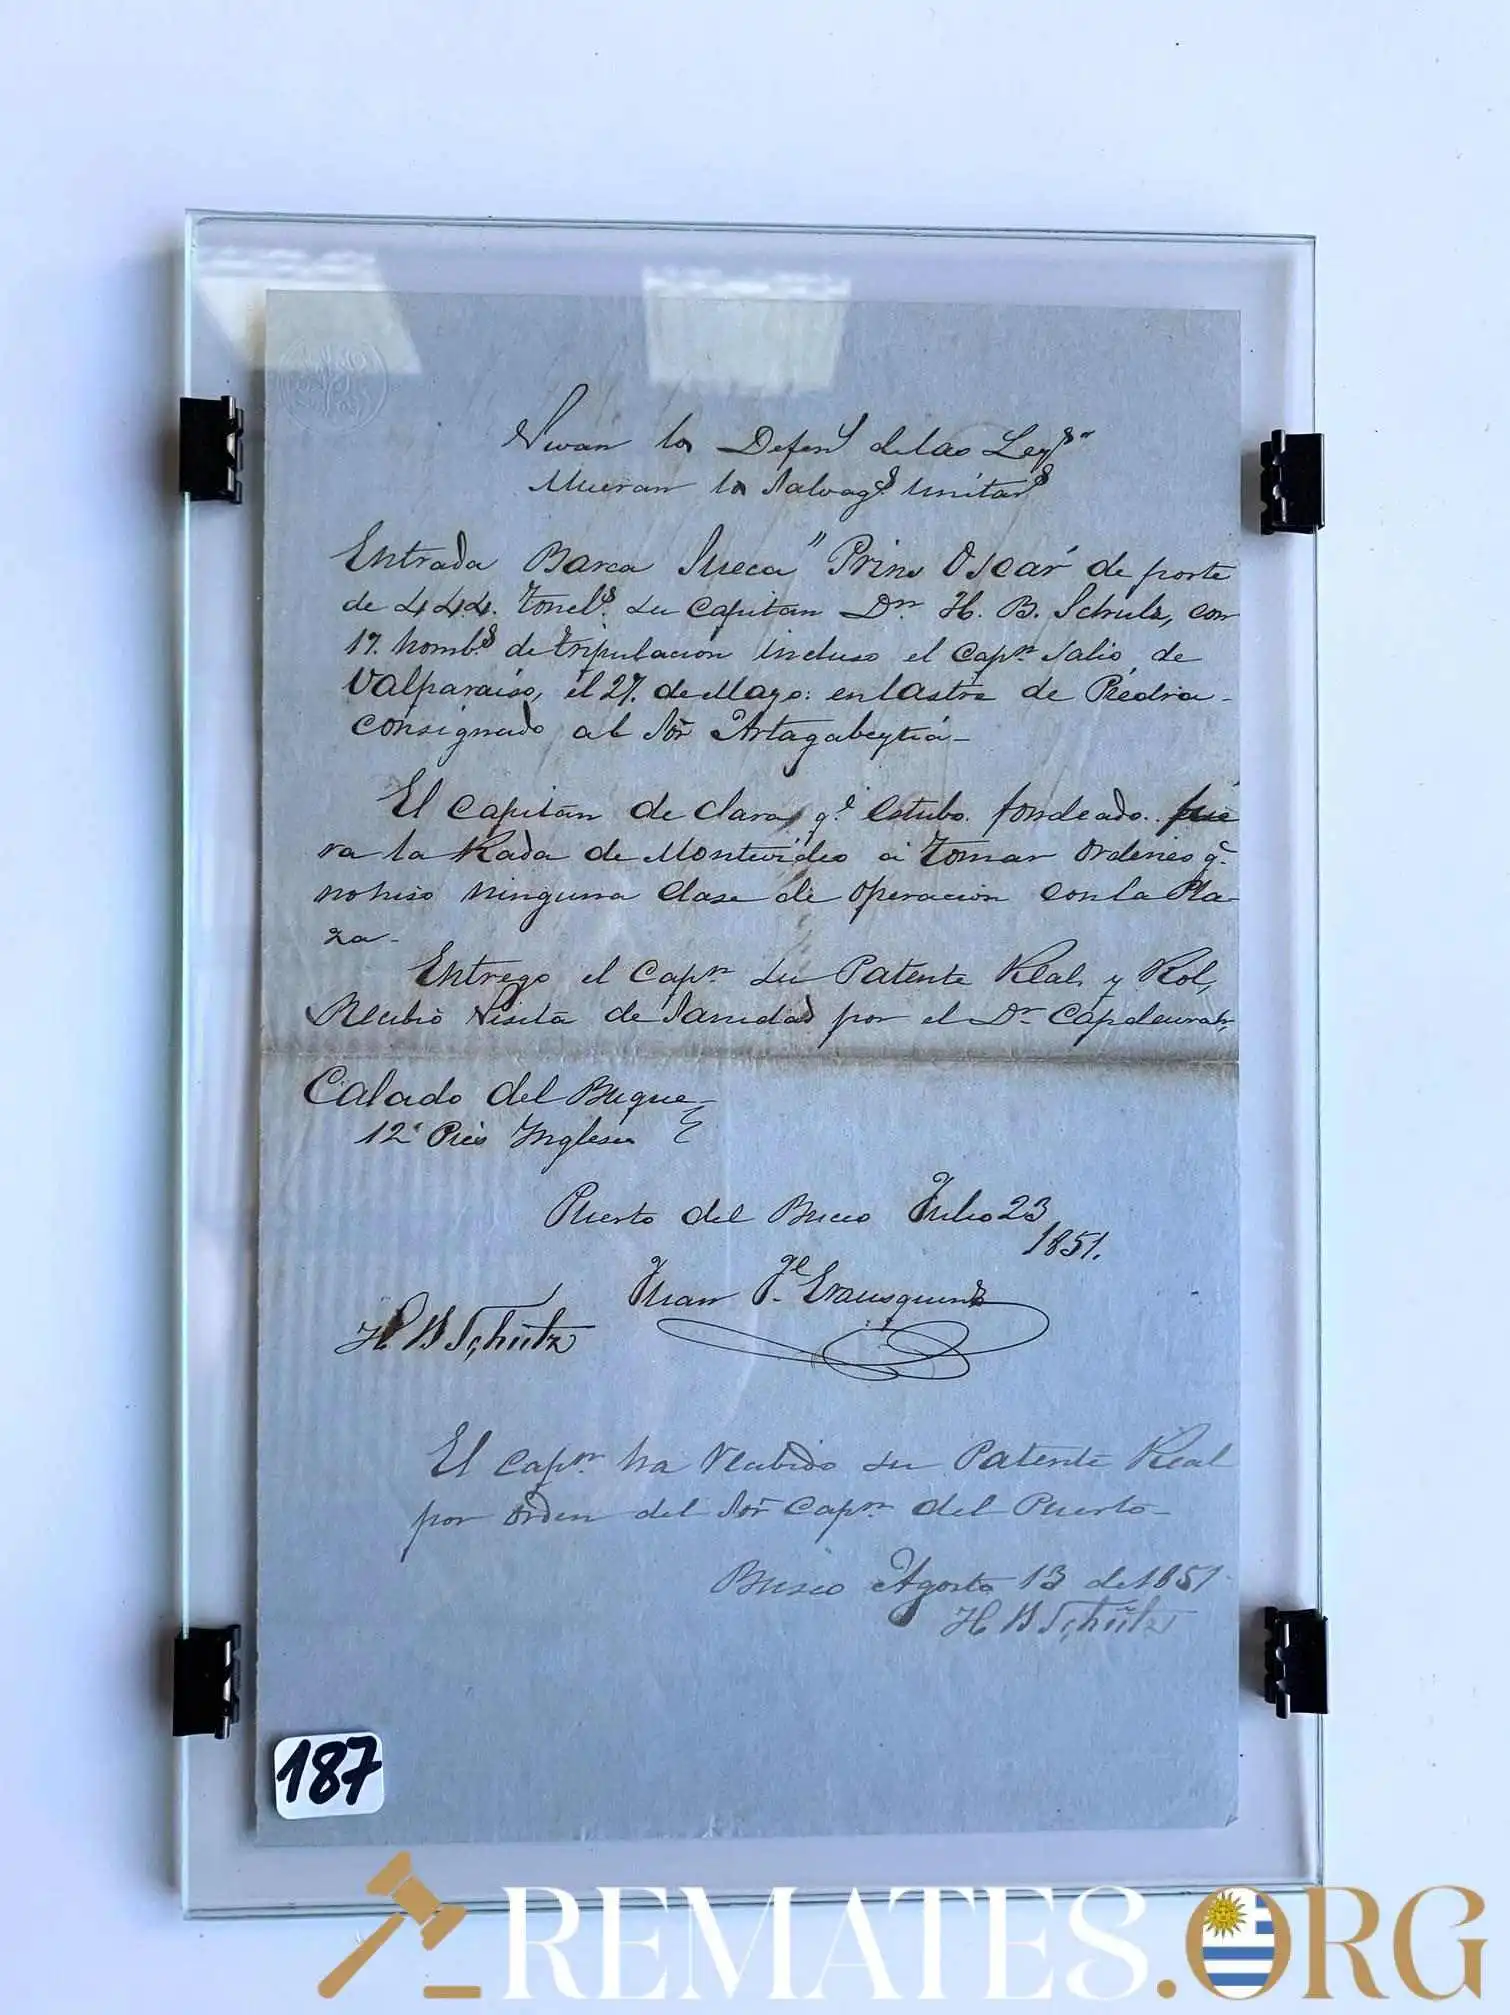 Vivan los Defens.s de las Ley.s
Mueran los Salvag.s Unitar.s
Entrada Barca Sueca "Prins Oscar" de porte
de 444. Tonel.s su Capitan D.n H. B. Schuls, con
17. homb.s de tripulacion incluso el Cap.n Salio, de
Valparaiso, el 27. de Mayo: en lastre de Piedra -
consignado al Sor Artagabeytia -
El Capitan declara, q.e estubo fondeado fue
ra la Rada de Montevideo a tomar ordenes q.e
no hiso ninguna clase de operacion con la Pla-
za -
Entrego el Cap.n su Patente Real, y Rol,
Recibio Visita de Sanidad por el D.r
Calado del Buque
12 Pies Ingleses
Puerto del Buceo Julio 23
1851.
Juan J.e Erausquin
H B Schütz
El Cap.n ha recibido su Patente Real
por orden del Sor Cap.n del Puerto -
Buseo Agosto 13 de 1851
H B Schütz
187
REMATES.ORG